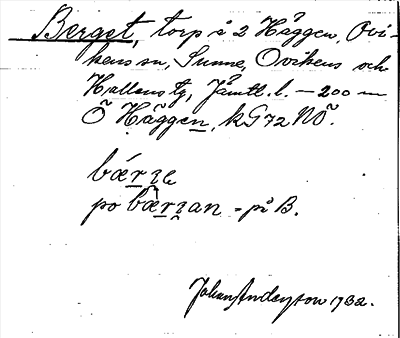 Berget, torp i 2 Häggen, Ovi-
kens sn, Sunne, Ovikens och
Hallens tg, Jämtl. l. — 200 m
Ö Häggen, kG72NÖ.
bærʒe
po bærʒan = på B.
Johan Anderson 1932.